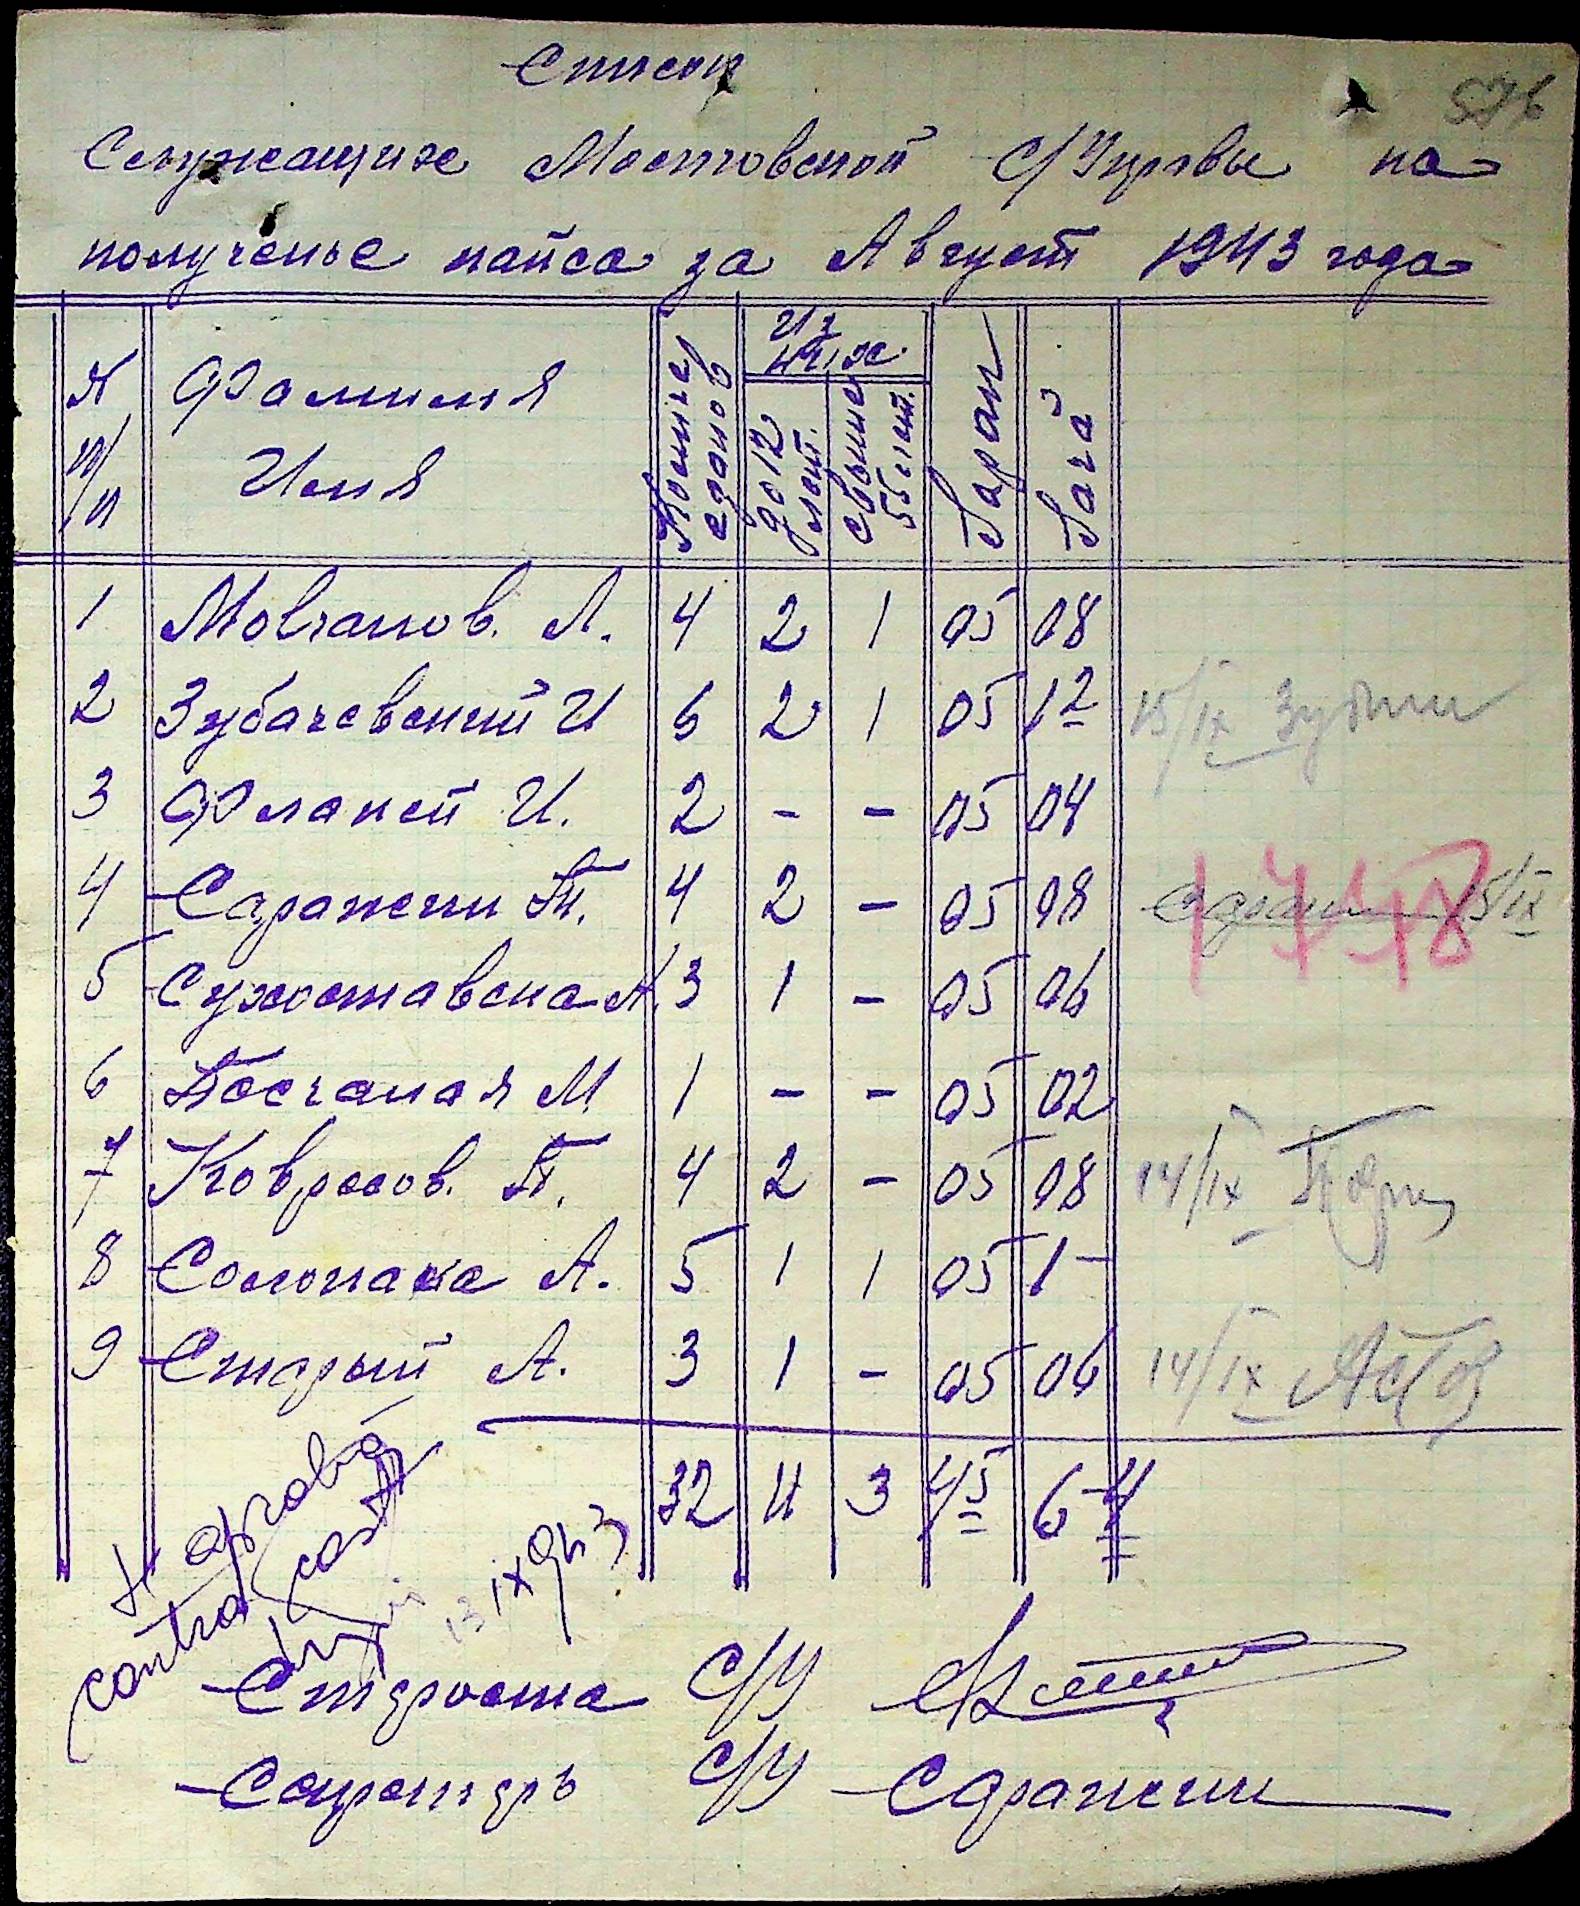 Список
Служащих Мостовской С/Управы на
полученье пайса за Август 1943 года
№ п/п Фамилия Имя Количе едоков Из них до 12 лет. свыше 55 лет.
1 Мовчанов. Л. 4 2 1 05 08
2 Зубачевский И 6 2 1 05 12 15/IX
3 Флакей И. 2 - - 05 04
4 Саражин П. 4 2 - 05 08 15/IX
1718
5 Сухоставска А. 3 1 - 05 06
6 Песчаная М 1 - - 05 02
7 Коврасов. П. 4 2 - 05 08 14/IX
8 Солонаха А. 5 1 1 05 1-
9 Старый А. 3 1 - 05 06 14/IX
32 11 3 45 6-4
aprobă
contra cost
13 IX 943
Староста С/У
Секретарь С/У Саражин